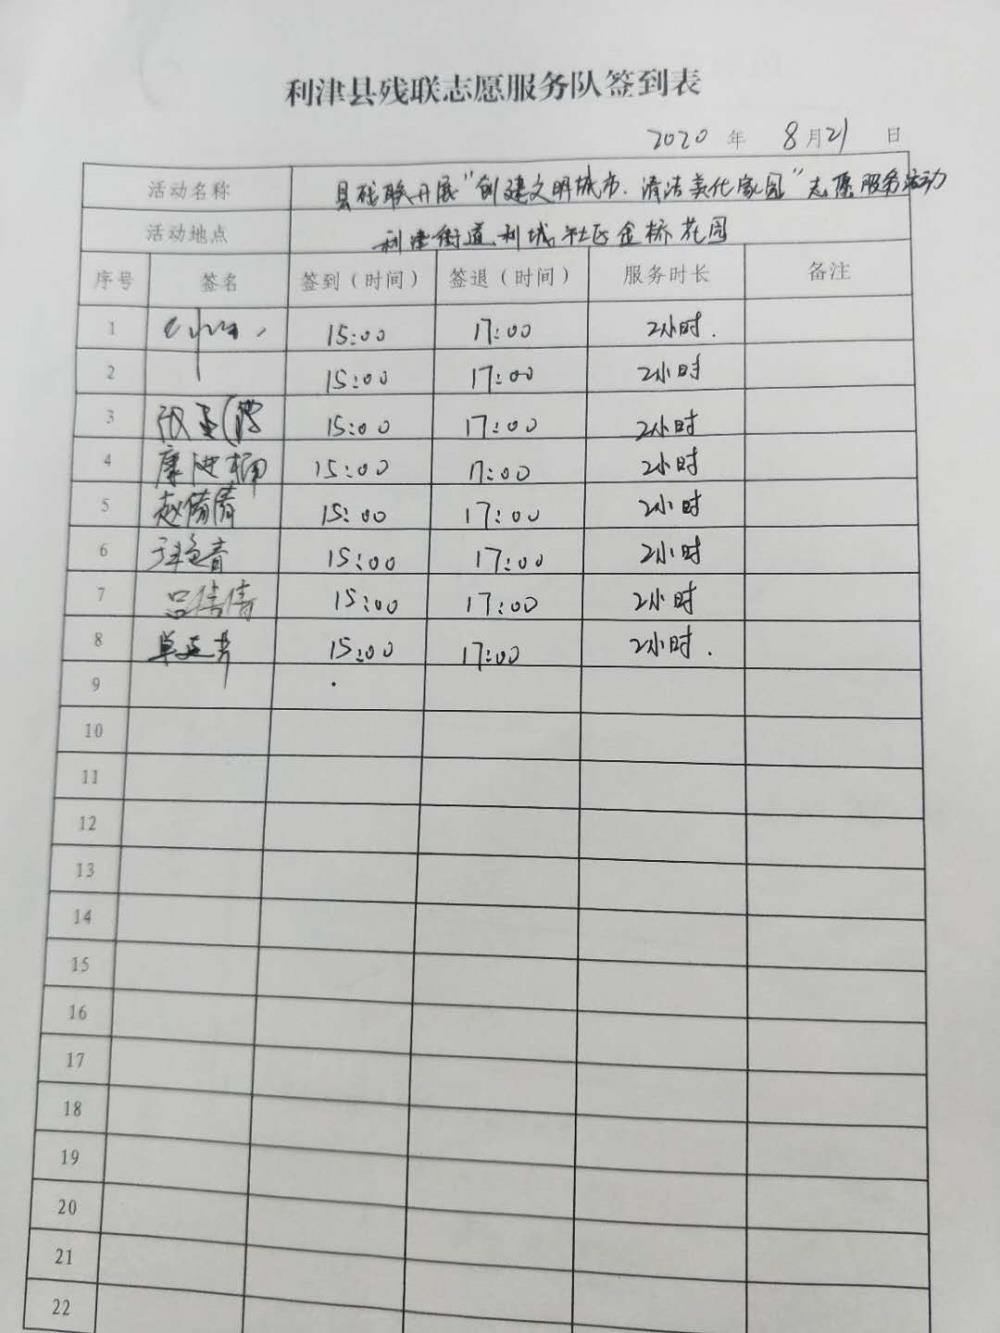 利津县残联志愿服务队签到表
2020 年 8月21 日
活动名称 县残联开展"创建文明城市.清洁美化家园"志愿服务活动
活动地点 利津街道利城社区金桥花园
序号 签名 签到(时间) 签退(时间) 服务时长 备注
1 15:00 17:00 2小时.
2 15:00 17:00 2小时
3 15:00 17:00 2小时
4 15:00 17:00 2小时
5 赵倩倩 15:00 17:00 2小时
6 15:00 17:00 2小时
7 吕倩倩 15:00 17:00 2小时
8 15:00 17:00 2小时.
9
10
11
12
13
14
15
16
17
18
19
20
21
22